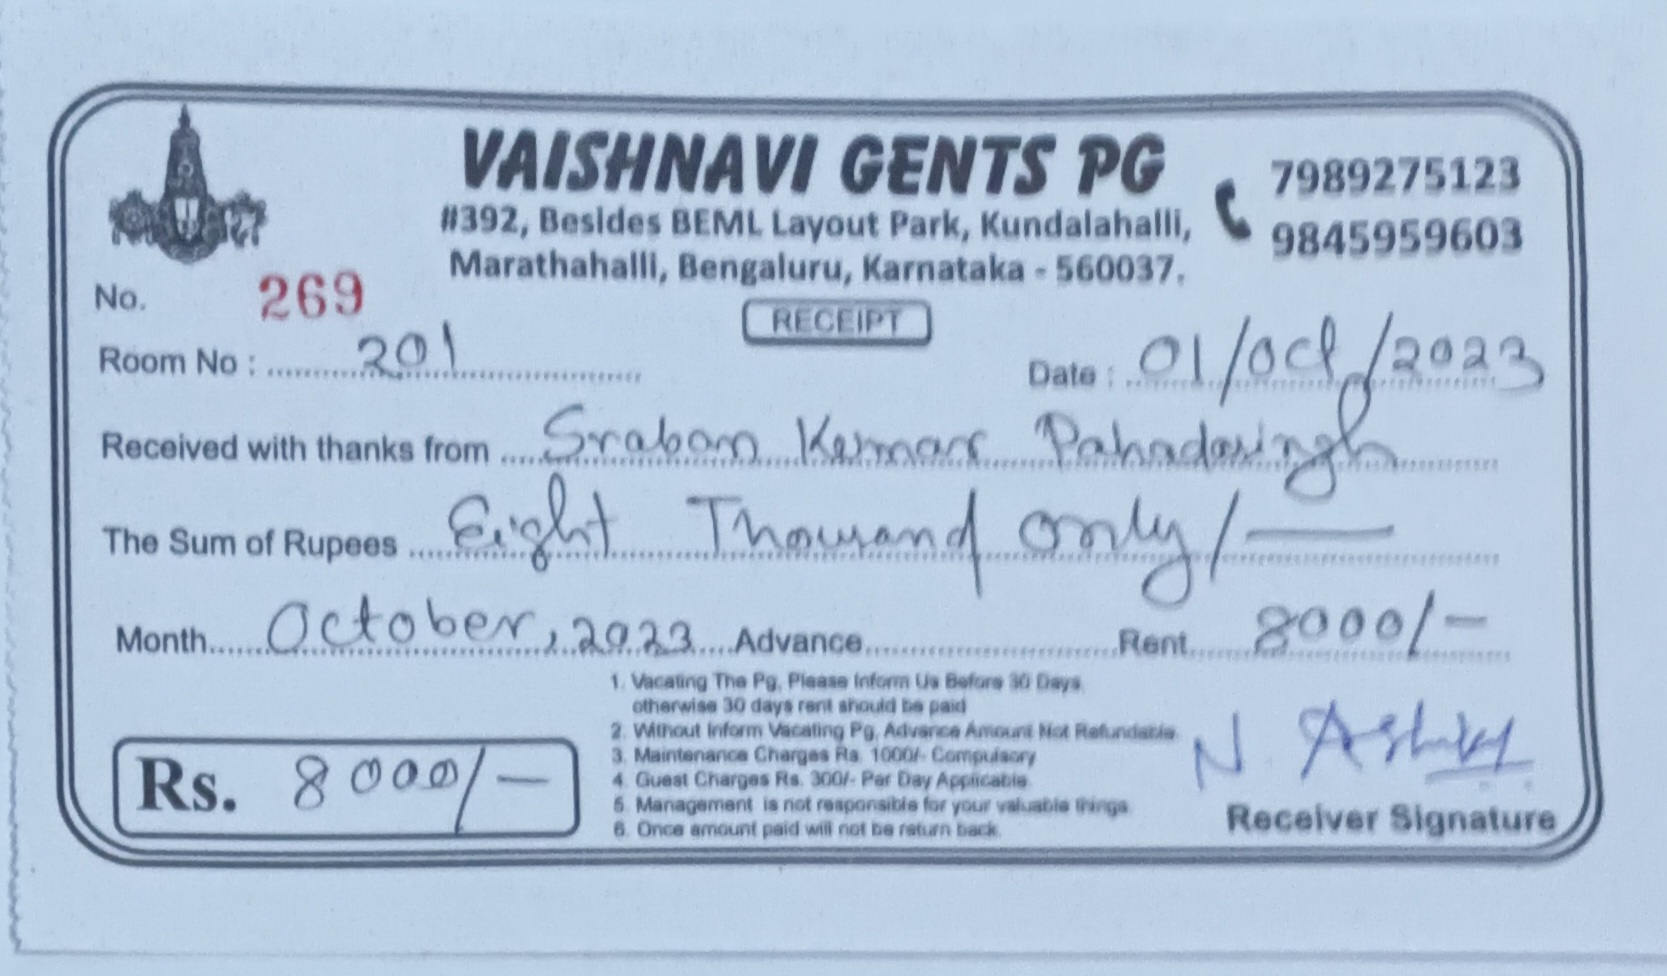 VAISHNAVI GENTS PG
#392, Besides BEML Layout Park, Kundalahalli,
Marathahalli, Bengaluru, Karnataka - 560037.
7989275123
9845959603
No. 269
RECEIPT
Room No : 201
Date : 01/Oct/2023
Received with thanks from Sraban Kumar Pahadasingh
The Sum of Rupees Eight Thousand only/—
Month October, 2023 Advance Rent 8000/-
1. Vacating The Pg, Please Inform Us Before 30 Days,
otherwise 30 days rent should be paid
2. Without Inform Vacating Pg, Advance Amount Not Refundable.
3. Maintenance Charges Rs. 1000/- Compulsory
4. Guest Charges Rs. 300/- Per Day Applicable.
5. Management is not responsible for your valuable things.
6. Once amount paid will not be return back.
Rs. 8000/-
N.
Receiver Signature